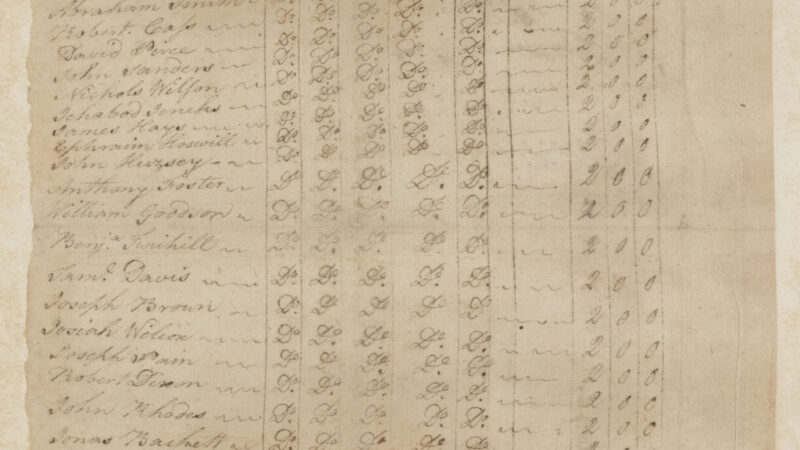 Abraham Smith Do. Do. Do. Do. Do. 2 0 0
Robert Cass Do. Do. Do. Do. Do. 2 0 0
David Perce Do. Do. Do. Do. Do. 2 0 0
John Sanders Do. Do. Do. Do. Do. 2 0 0
Nichols Wilson Do. Do. Do. Do. Do. 2 0 0
Ichabod Jencks Do. Do. Do. Do. Do. 2 0 0
James Hays Do. Do. Do. Do. Do. 2 0 0
Ephraim Do. Do. Do. Do. Do. 2 0 0
John Do. Do. Do. Do. Do. 2 0 0
Anthony Foster Do. Do. Do. Do. Do. 2 0 0
William Goodson Do. Do. Do. Do. Do. 2 0 0
Benja. Do. Do. Do. Do. Do. 2 0 0
Saml. Davis Do. Do. Do. Do. Do. 2 0 0
Joseph Brown Do. Do. Do. Do. Do. 2 0 0
Josiah Do. Do. Do. Do. Do. 2 0 0
Joseph Do. Do. Do. Do. Do. 2 0 0
Robert Dixon Do. Do. Do. Do. Do. 2 0 0
John Rhodes Do. Do. Do. Do. Do. 2 0 0
Jonas Do. Do. Do. Do. Do. 2 0 0